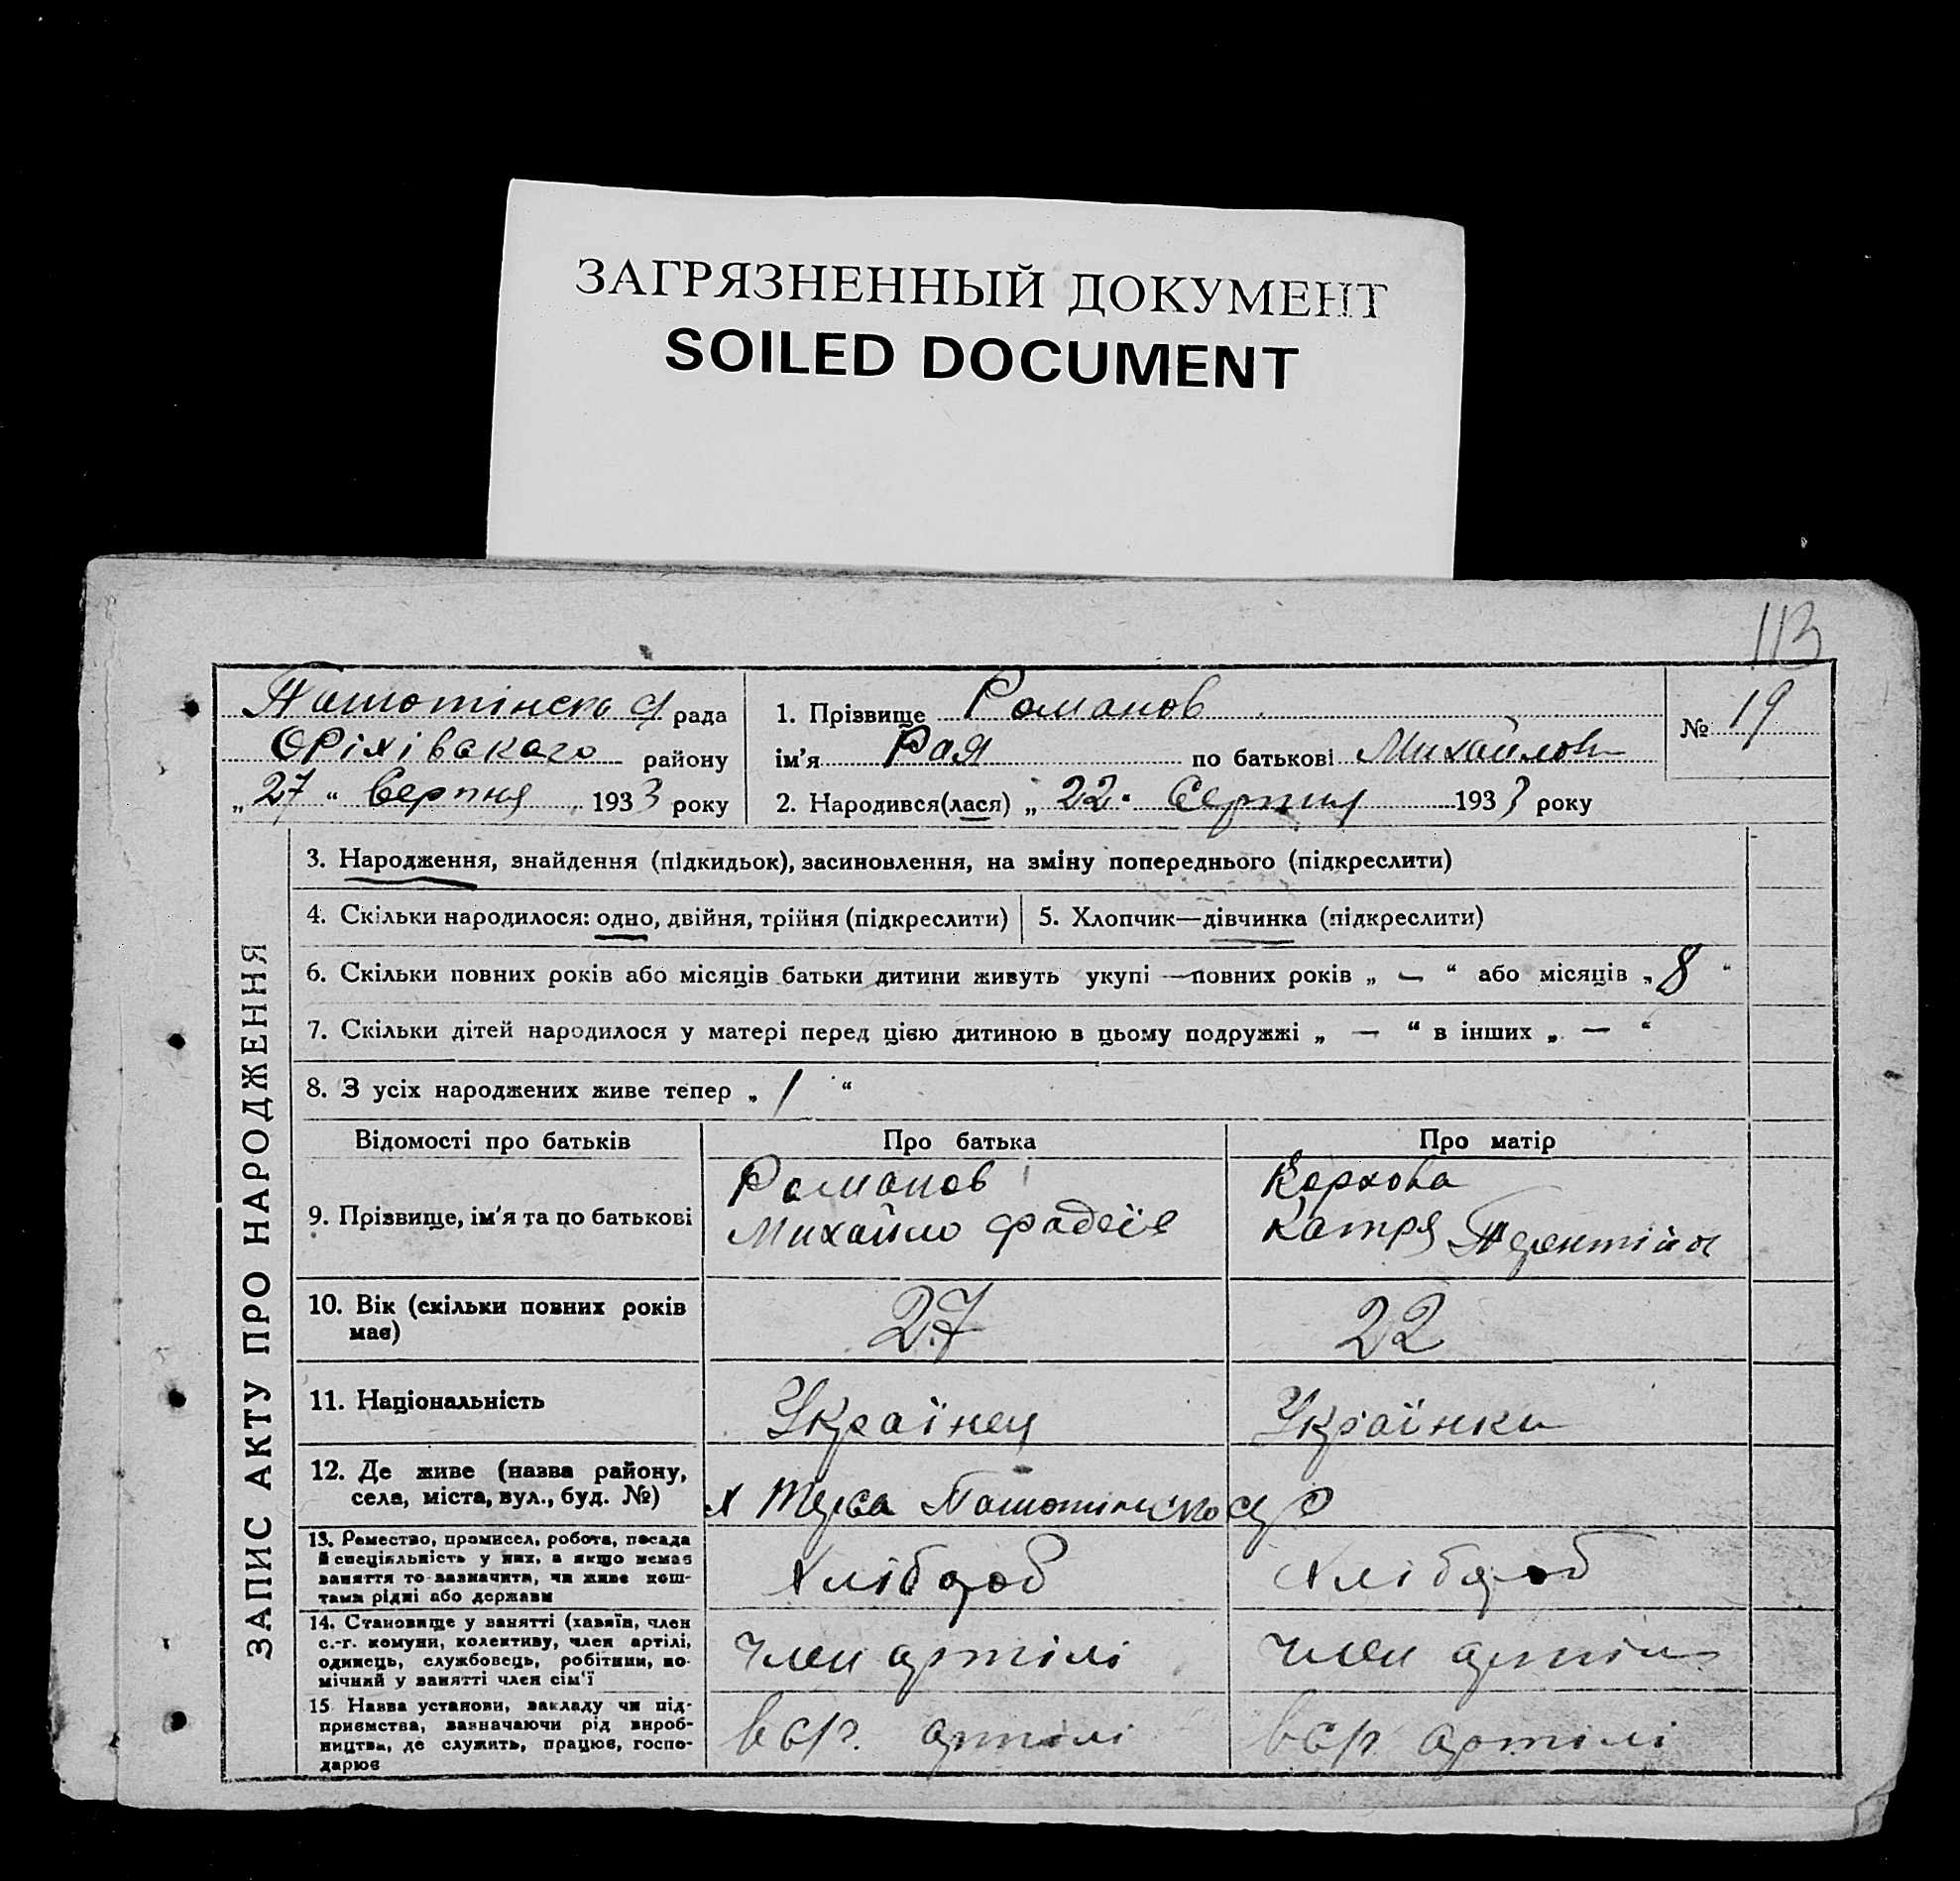 ЗАГРЯЗНЕННЫЙ ДОКУМЕНТ
SOILED DOCUMENT
113
рада
Оріхівського району
„27“ Серпня 1933 року
1. Прізвище Романов
ім'я Рая по батькові Михайлов
2. Народився(лася) „22“ Серпня 1933 року
№ 19
ЗАПИС АКТУ ПРО НАРОДЖЕННЯ
3. Народження, знайдення (підкидьок), засиновлення, на зміну попереднього (підкреслити)
4. Скільки народилося: одно, двійня, трійня (підкреслити)
5. Хлопчик—дівчинка (підкреслити)
6. Скільки повних років або місяців батьки дитини живуть укупі —повних років „ — “ або місяців „8“
7. Скільки дітей народилося у матері перед цією дитиною в цьому подружжі „ — “ в інших „ — “
8. З усіх народжених живе тепер „ 1 “
Відомості про батьків
Про батька
Про матір
9. Прізвище, ім'я та по батькові
Романов
Михайло Фадеїв
Катря
10. Вік (скільки повних років
має)
27
22
11. Національність
Українец
Українка
12. Де живе (назва району,
села, міста, вул., буд. №)
13. Ремество, промисел, робота, посада
й спеціяльність у них, а якщо немає
заняття то зазначити, чи живе кош-
тами рідні або держави
Хлібороб
Хлібороб
14. Становище у занятті (хазяїн, член
с.-г. комуни, колективу, член артілі,
одинець, службовець, робітник, по-
мічний у занятті член сім'ї
член артілі
член артіли
15 Назва установи, закладу чи під-
приємства, зазначаючи рід вироб-
ництва, де служить, працює, госпо-
дарює
артілі
артілі